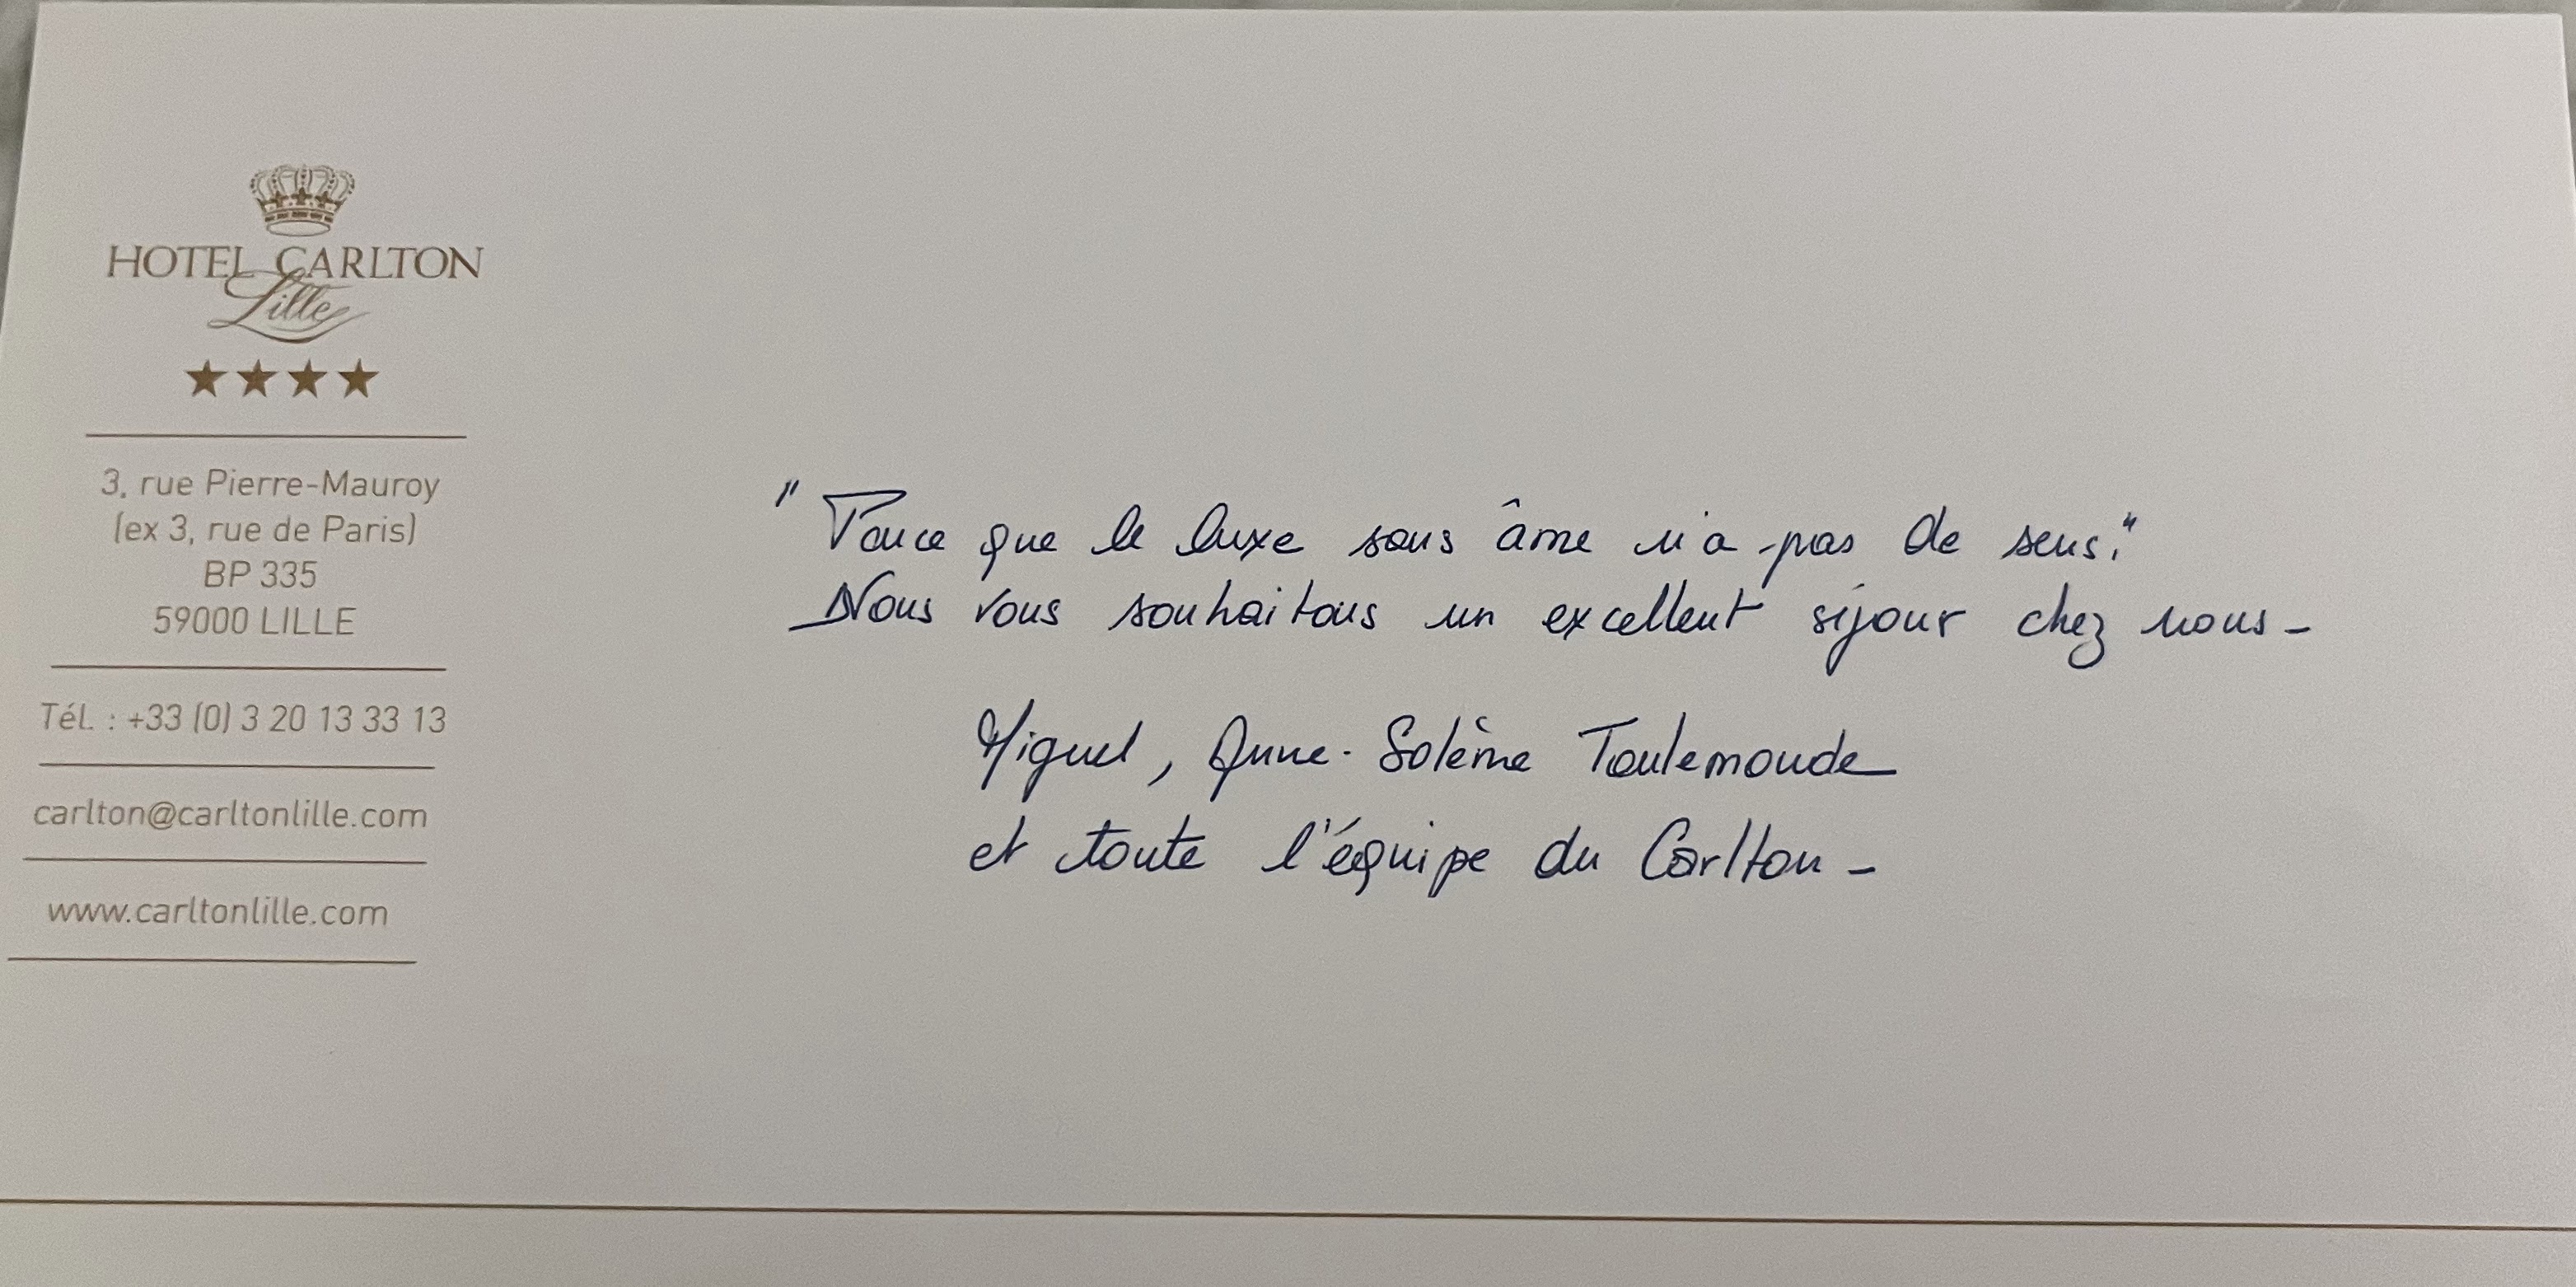 HOTEL CARLTON
Lille
★★★★
3, rue Pierre-Mauroy
(ex 3, rue de Paris)
BP 335
59000 LILLE
Tél. : +33 (0) 3 20 13 33 13
carlton@carltonlille.com
www.carltonlille.com
"Parce que le luxe sans âme n'a pas de sens."
Nous vous souhaitons un excellent séjour chez nous-
Miguel, Anne-Solène Toulemonde
et toute l'équipe du Carlton-